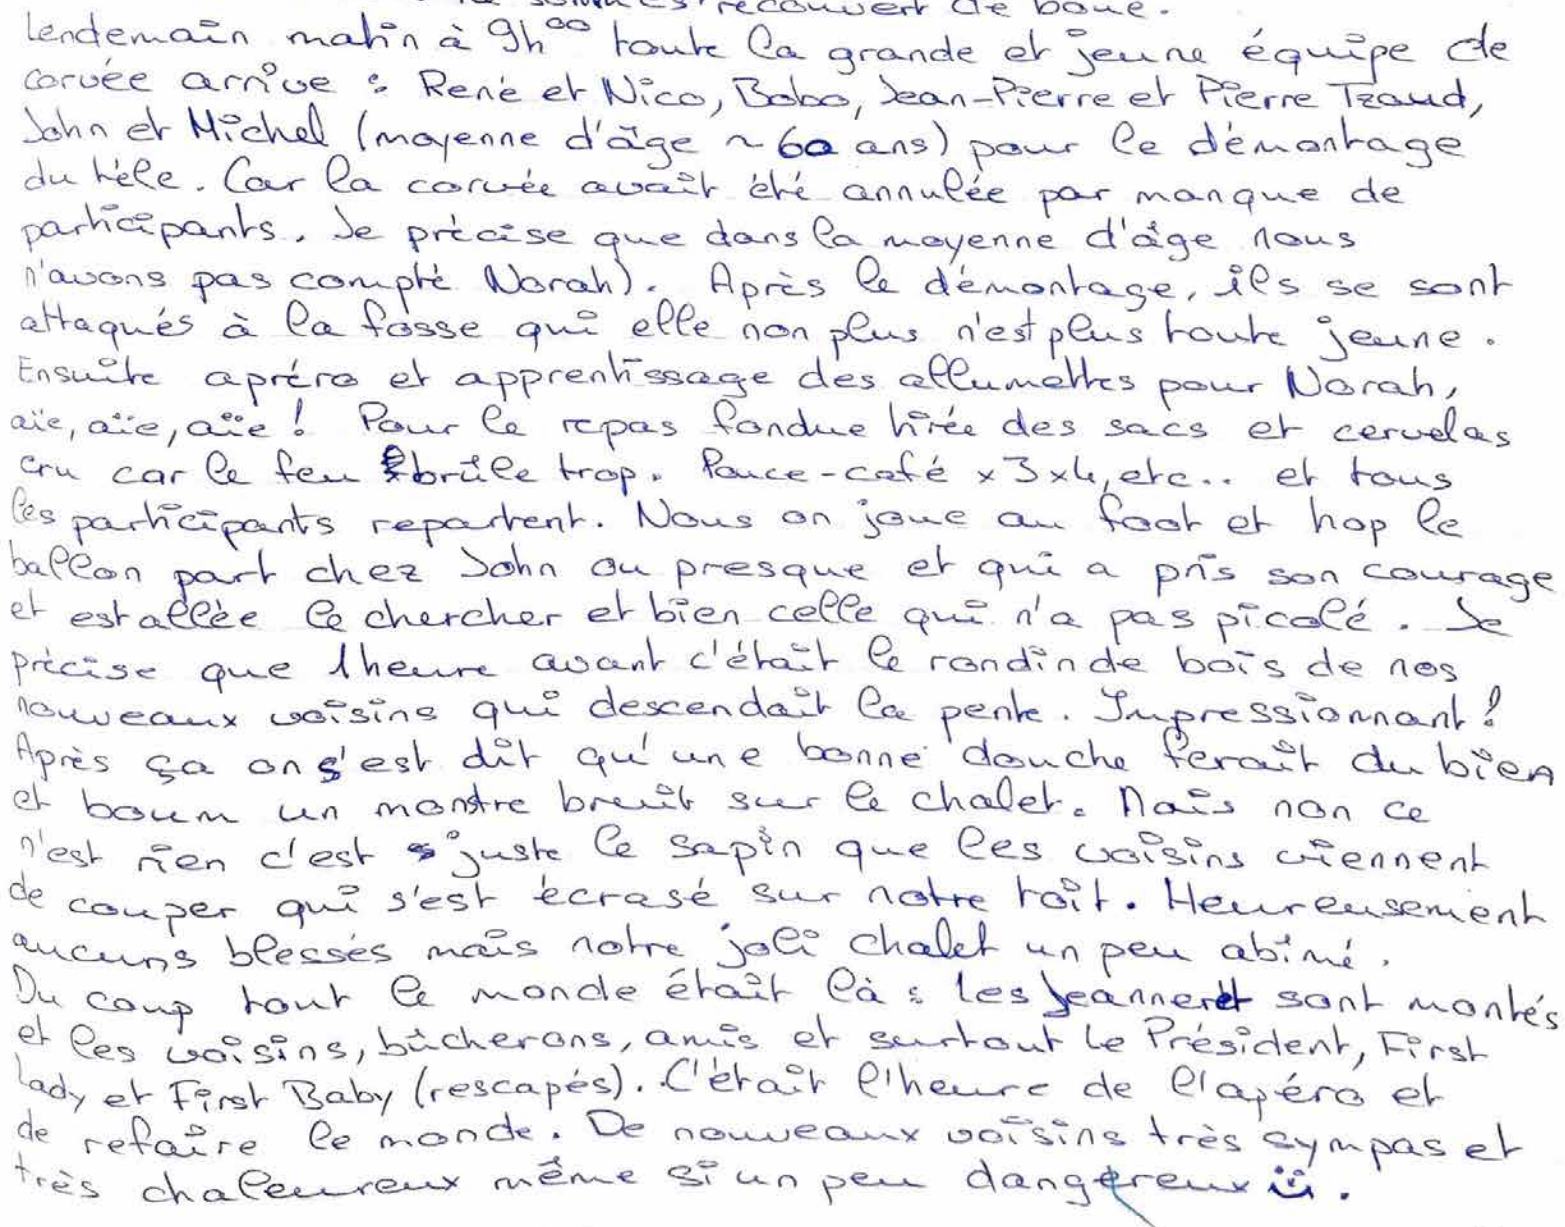 recouvert de boue.
lendemain matin à 9h00 toute la grande et jeune équipe de
corvée arrive : René et Nico, Bobo, Jean-Pierre et Pierre Tzaud,
John et Michel (moyenne d'âge ~ 60 ans) pour le démontage
du télé. Car la corvée avait été annulée par manque de
participants. Je précise que dans la moyenne d'âge nous
n'avons pas compté Norah). Après le démontage, ils se sont
attaqués à la fosse qui elle non plus n'est plus toute jeune.
Ensuite apréro et apprentissage des allumettes pour Norah,
aïe, aïe, aïe ! Pour le repas fondue tirée des sacs et cervelas
cru car le feu brûle trop. Pouce-café x 3 x 4, etc.. et tous
les participants repartent. Nous on joue au foot et hop le
ballon part chez John ou presque et qui a pris son courage
et est allée le chercher et bien celle qui n'a pas picolé. Je
précise que 1heure avant c'était le rondin de bois de nos
nouveaux voisins qui descendait la pente. Impressionnant !
Après ça on s'est dit qu'une bonne douche ferait du bien
et boum un monstre bruit sur le chalet. Mais non ce
n'est rien c'est juste le sapin que les voisins viennent
de couper qui s'est écrasé sur notre toit. Heureusement
aucuns blessés mais notre joli chalet un peu abîmé.
Du coup tout le monde était là : les Jeanneret sont montés
et les voisins, bûcherons, amis et surtout le Président, First
lady et First Baby (rescapés). C'était l'heure de l'apéro et
de refaire le monde. De nouveaux voisins très sympas et
très chaleureux même si un peu dangereux.